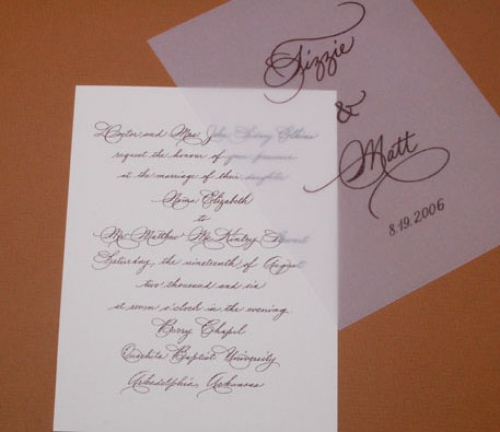 Doctor and Mrs. John
request the honour of your presence
at the marriage of their daughter
Naima Elizabeth
to
Mr. Matthew McKinley
Saturday, the nineteenth of August
two thousand and six
at seven o'clock in the evening
Berry Chapel
Ouachita Baptist University
Arkadelphia, Arkansas
Lizzie
&
Matt
8.19.2006